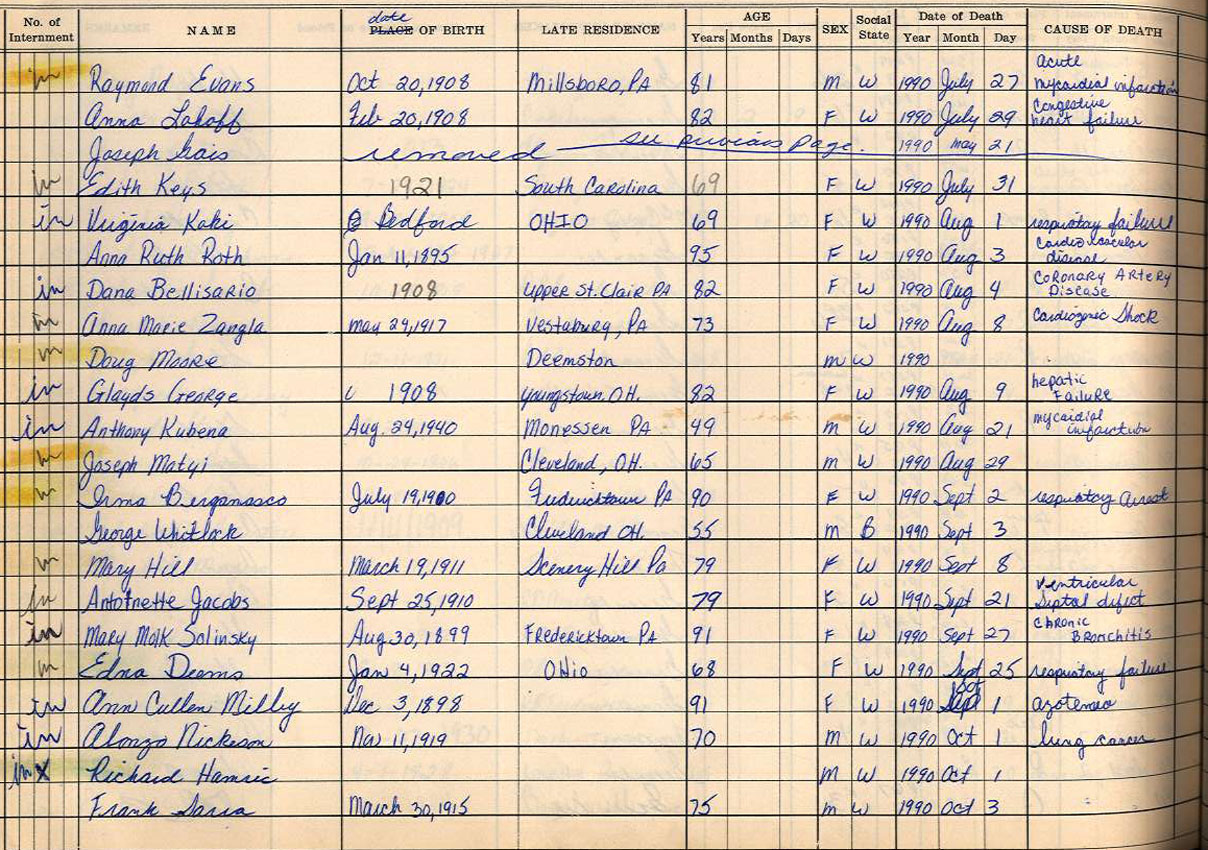 No. of Internment NAME date PLACE OF BIRTH LATE RESIDENCE AGE Years Months Days SEX Social State Date of Death Year Month Day CAUSE OF DEATH
in Raymond Evans Oct 20, 1908 Millsboro, PA 81 M W 1990 July 27 Acute mycardial infarction
Anna Lakoff Feb 20, 1908 82 F W 1990 July 29 Congestive heart failure
Joseph Gais removed see previous page. 1990 May 21
in Edith Keys 1921 South Carolina 69 F W 1990 July 31
in Virginia Kaki Bedford OHIO 69 F W 1990 Aug 1 respiratory failure
Anna Ruth Roth Jan 11, 1895 95 F W 1990 Aug 3 Cardiovascular disease
in Dana Bellisario 1908 Upper St. Clair PA 82 F W 1990 Aug 4 Coronary Artery Disease
in Anna Marie Zangla May 29, 1917 Vestaburg, PA 73 F W 1990 Aug 8 Cardiogenic Shock
in Doug Moore Deemston M W 1990
in Glayds George 1908 Youngstown, OH. 82 F W 1990 Aug 9 hepatic Failure
in Anthony Kubena Aug. 24, 1940 Monessen PA 49 M W 1990 Aug 21 mycardial infarction
in Joseph Matyi Cleveland, OH. 65 M W 1990 Aug 29
in Irma Bergamasco July 19, 1900 Fredericktown PA 90 F W 1990 Sept 2 respiratory Arrest
George Whitlock Cleveland OH. 55 M B 1990 Sept 3
in Mary Hill March 19, 1911 Scenery Hill Pa 79 F W 1990 Sept 8
in Antoinette Jacobs Sept 25, 1910 79 F W 1990 Sept 21 Ventricular Septal defect
in Mary Molk Solinsky Aug 30, 1899 Fredericktown PA 91 F W 1990 Sept 27 Chronic Bronchitis
in Edna Deems Jan 4, 1922 Ohio 68 F W 1990 Sept 25 respiratory failure
in Ann Cullen Milley Dec 3, 1898 91 F W 1990 Oct Sept 1 azotemea
in Alonzo Nickeson Nov 11, 1919 70 M W 1990 Oct 1 lung cancer
in X Richard Hamric M W 1990 Oct 1
Frank March 30, 1915 75 M W 1990 Oct 3